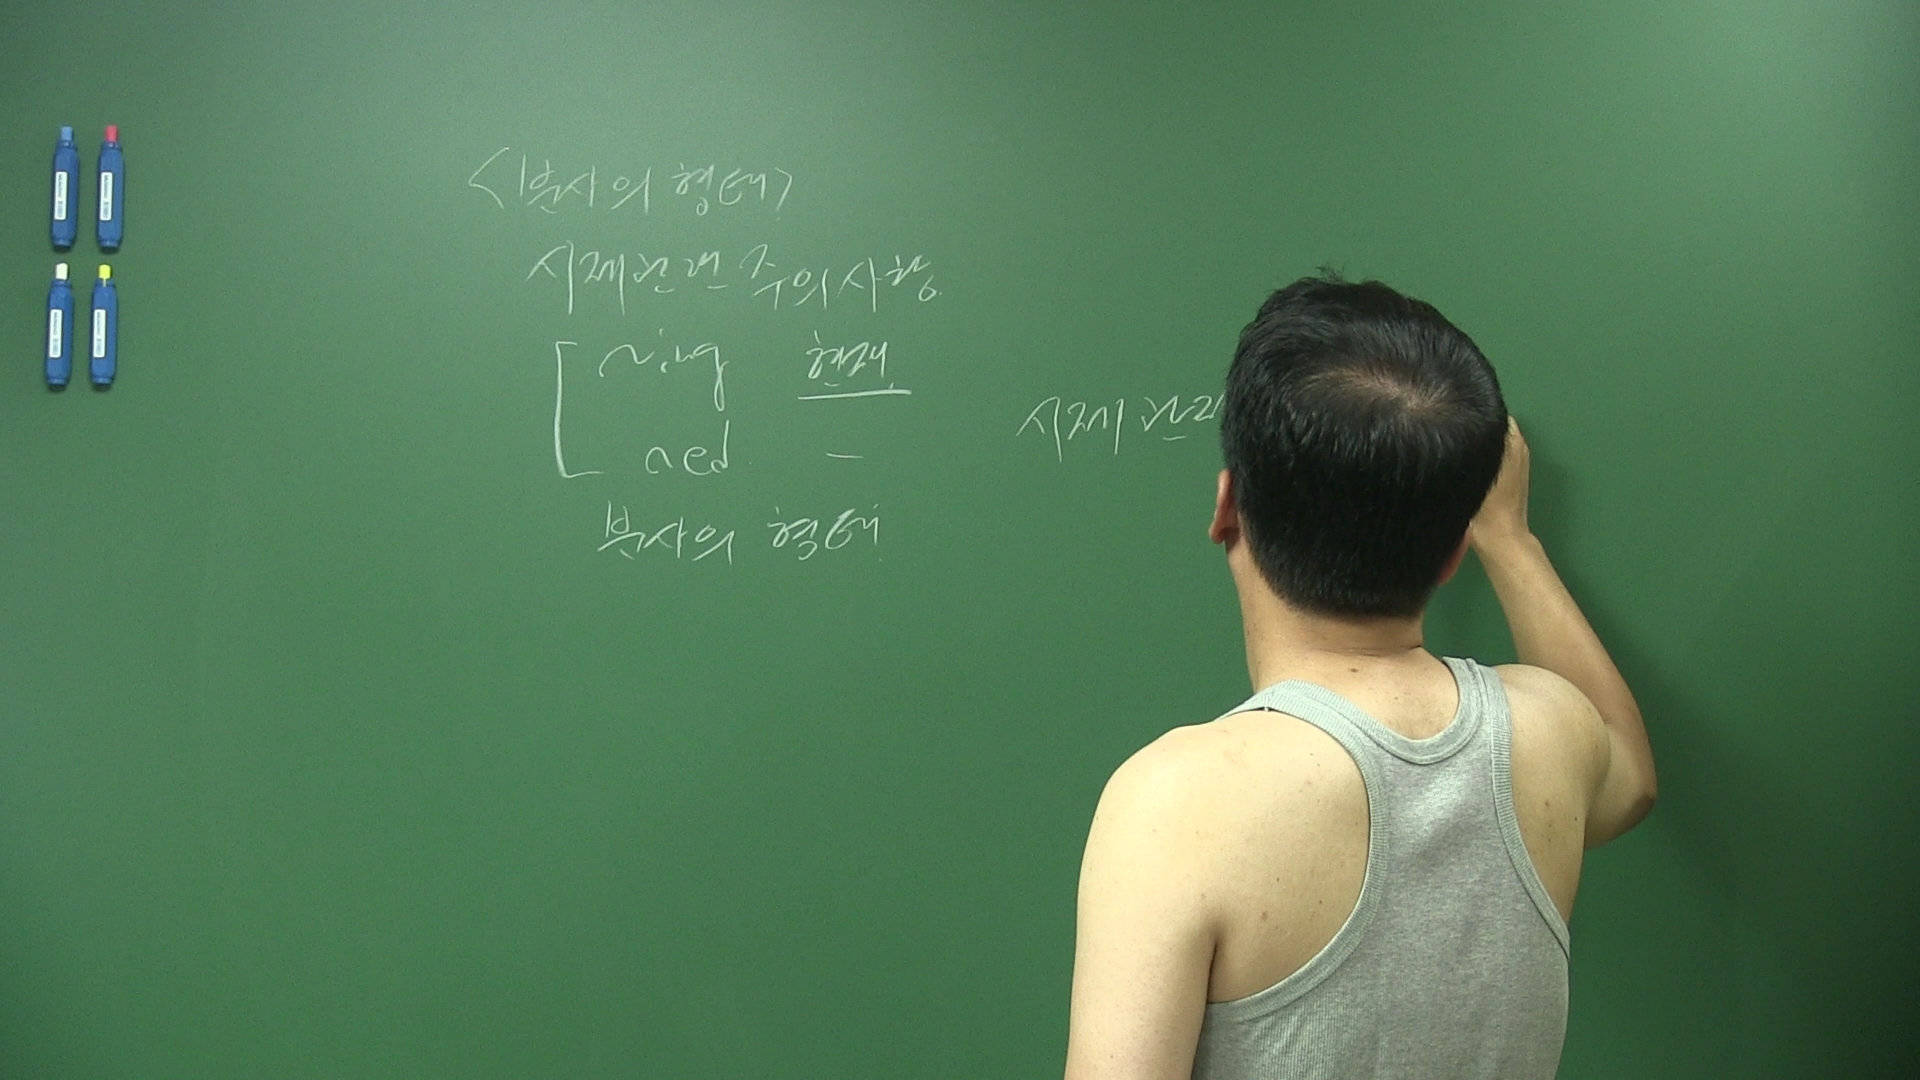 <분사의 형태>
시제관련 주의사항.
~ing 현재
~ed -
분사의 형태
시제 관련